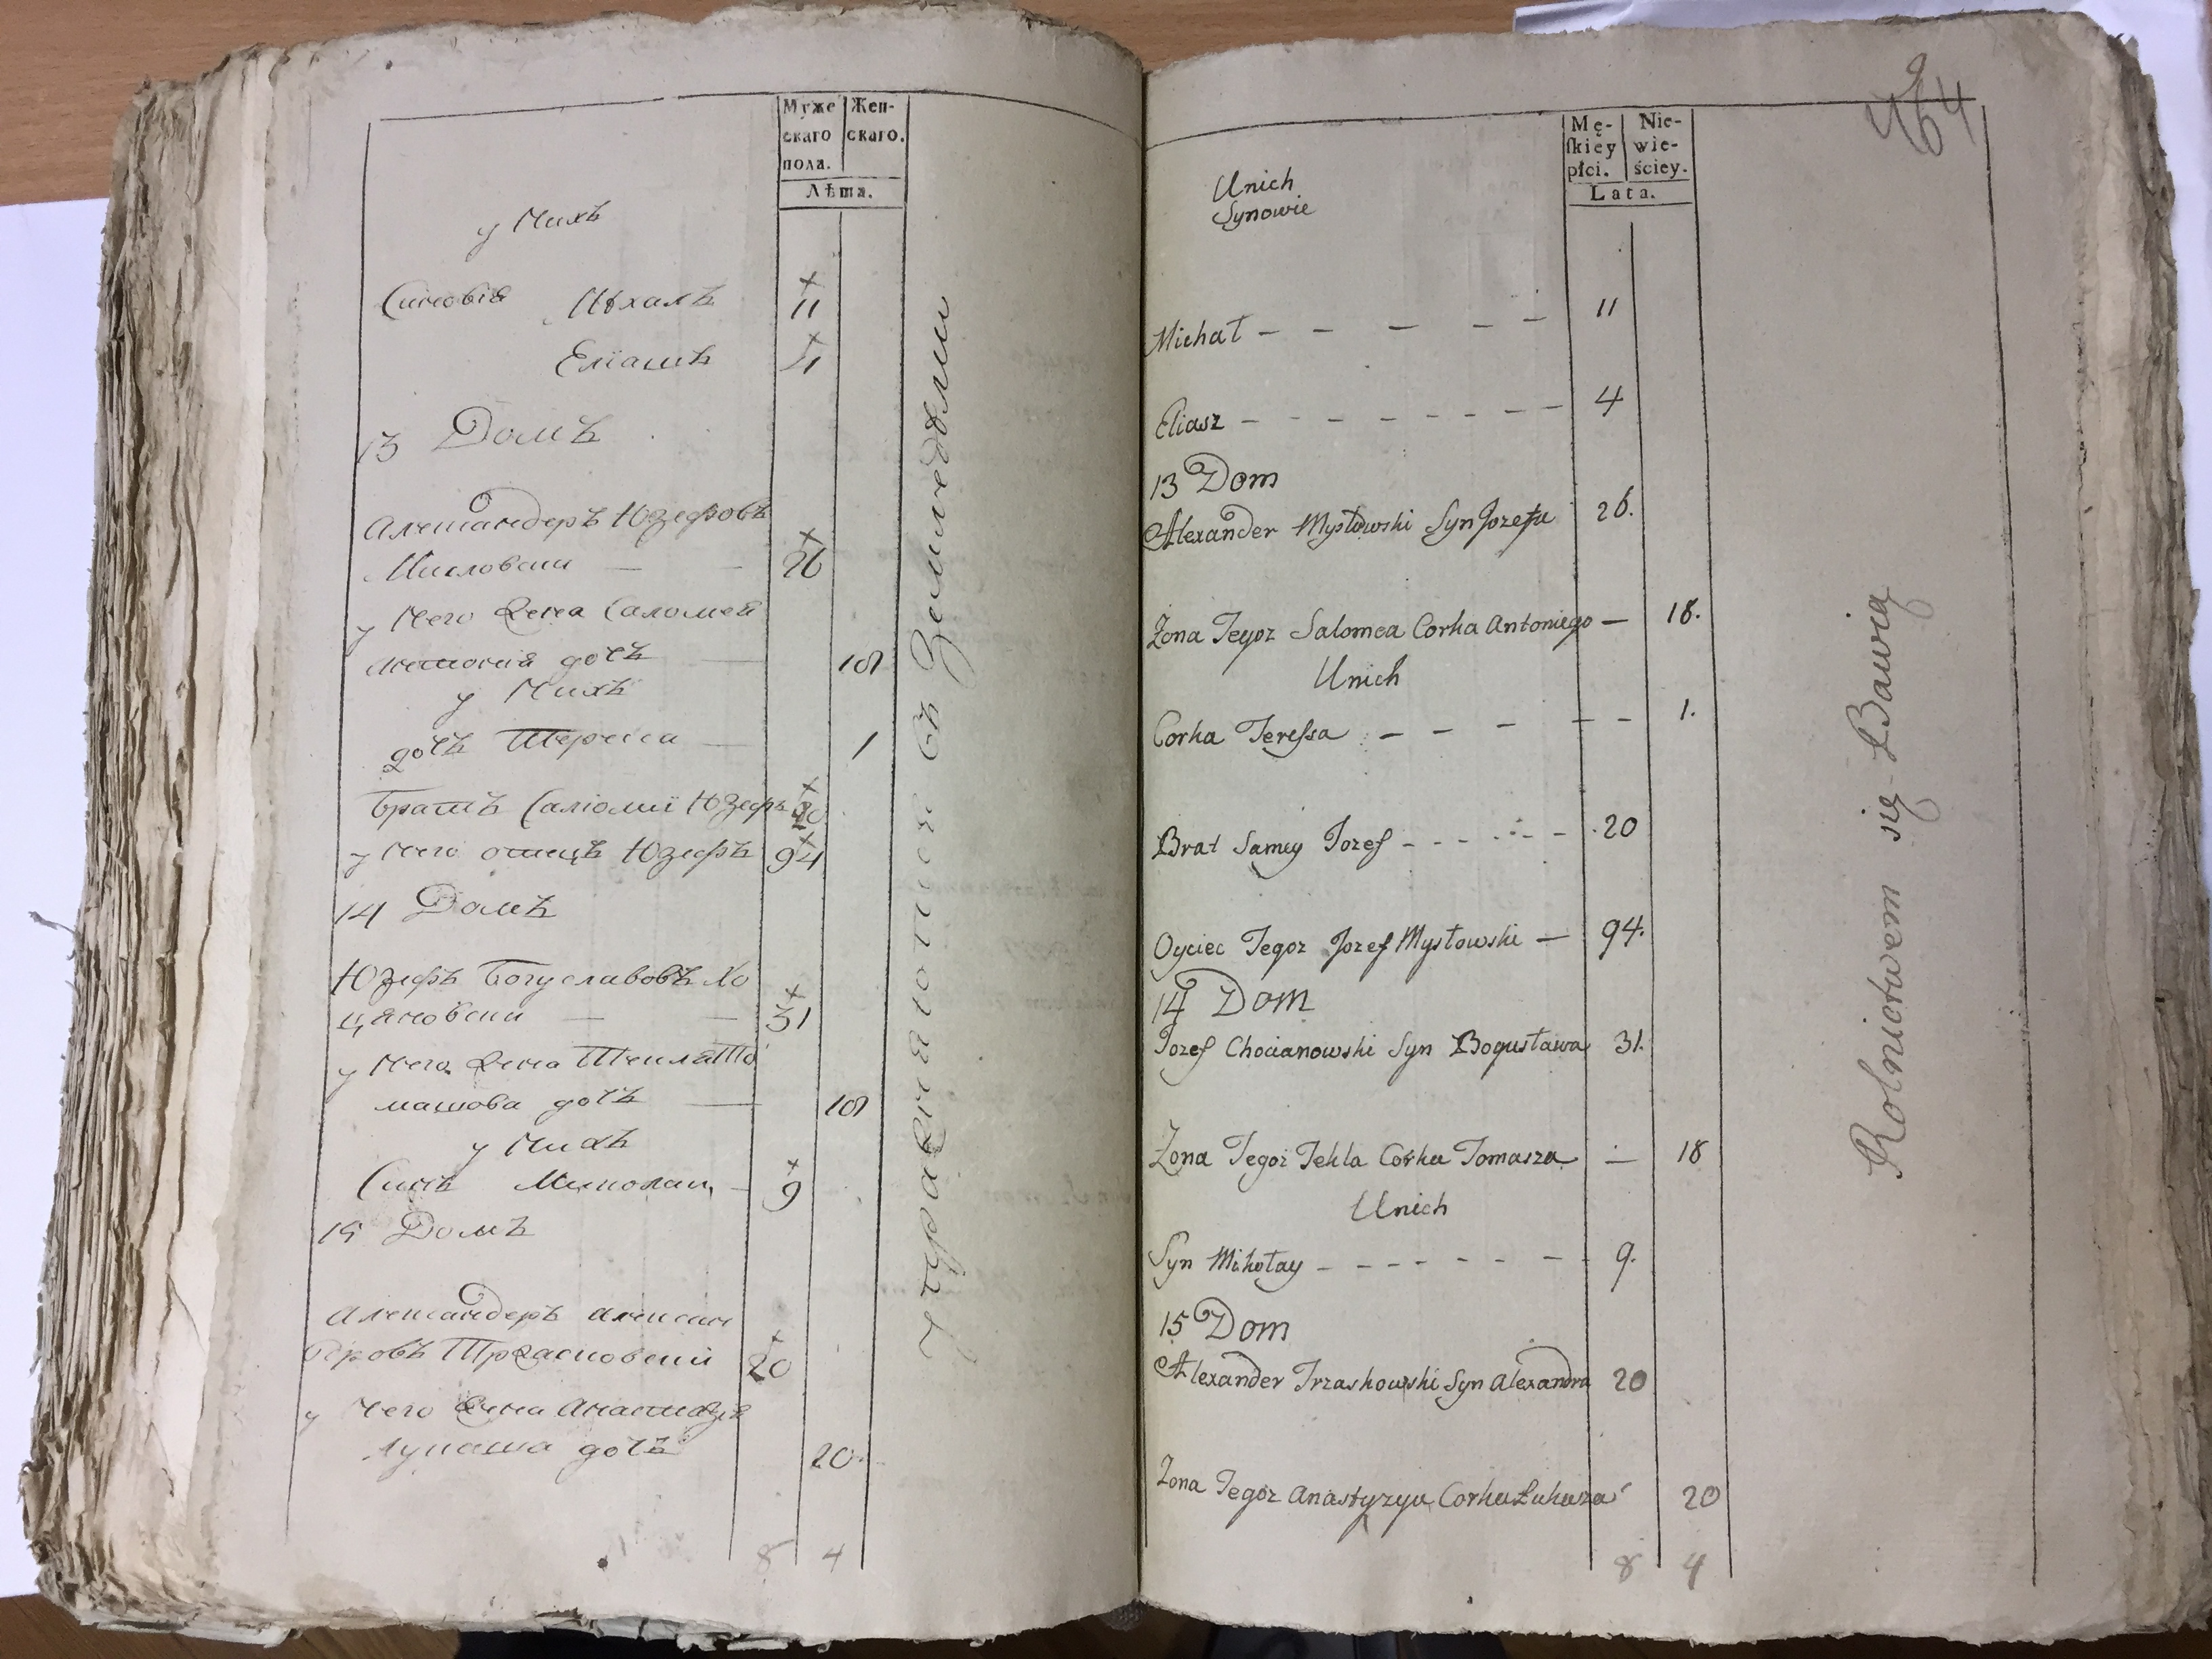 Муже
скаго
пола.
Жен-
скаго.
Лѣта.
у Нихъ
Синовія Михалъ 11
Еліашъ 4
13 Домъ
Александеръ Юзефовъ
Мисловски — — 26
у Него Жена Саломея
Антонія дочъ — 18
у Нихъ
дочъ Тереса — 1
Братъ Саліомїи Юзефъ 20
у Него отецъ Юзефъ 94
14 Домъ
Юзефъ Богуславовъ Хо
цяновски — — 31
у Него Жена Текля То
машова дочъ — 18
у Нихъ
Синъ Миколай — 9
15 Домъ
Александеръ Алексан
дровъ Тржасковскій 20
у Него Жена Анастазія
Лукаша дочъ 20
8 4
Упражняются въ Земледѣлии
464
Mę-
ſkiey
płci.
Nie-
wie-
ściey.
Lata.
Unich
Synowie
Michał — — — — — 11
Eliasz — — — — — — — — 4
13 Dom
Alexander Mysłowski Syn Jozefa 26.
Zona Tegoz Salomea Corka Antoniego — 18.
Unich
Corka Tereſsa — — — — — 1.
Brat Samey Jozef - - - - - - 20
Oyciec Tegoz Jozef Mysłowski — 94.
14 Dom
Jozef Chocianowski Syn Bogusława 31.
Zona Tegoz Tekla Corka Tomasza — 18
Unich
Syn Mikołay - - - - - - - 9.
15 Dom
Alexander Trzaskowski Syn Alexandra 20
Zona Tegoz Anastyzya Corka Łukasza 20
8 4
Rolnictwem się Bawią